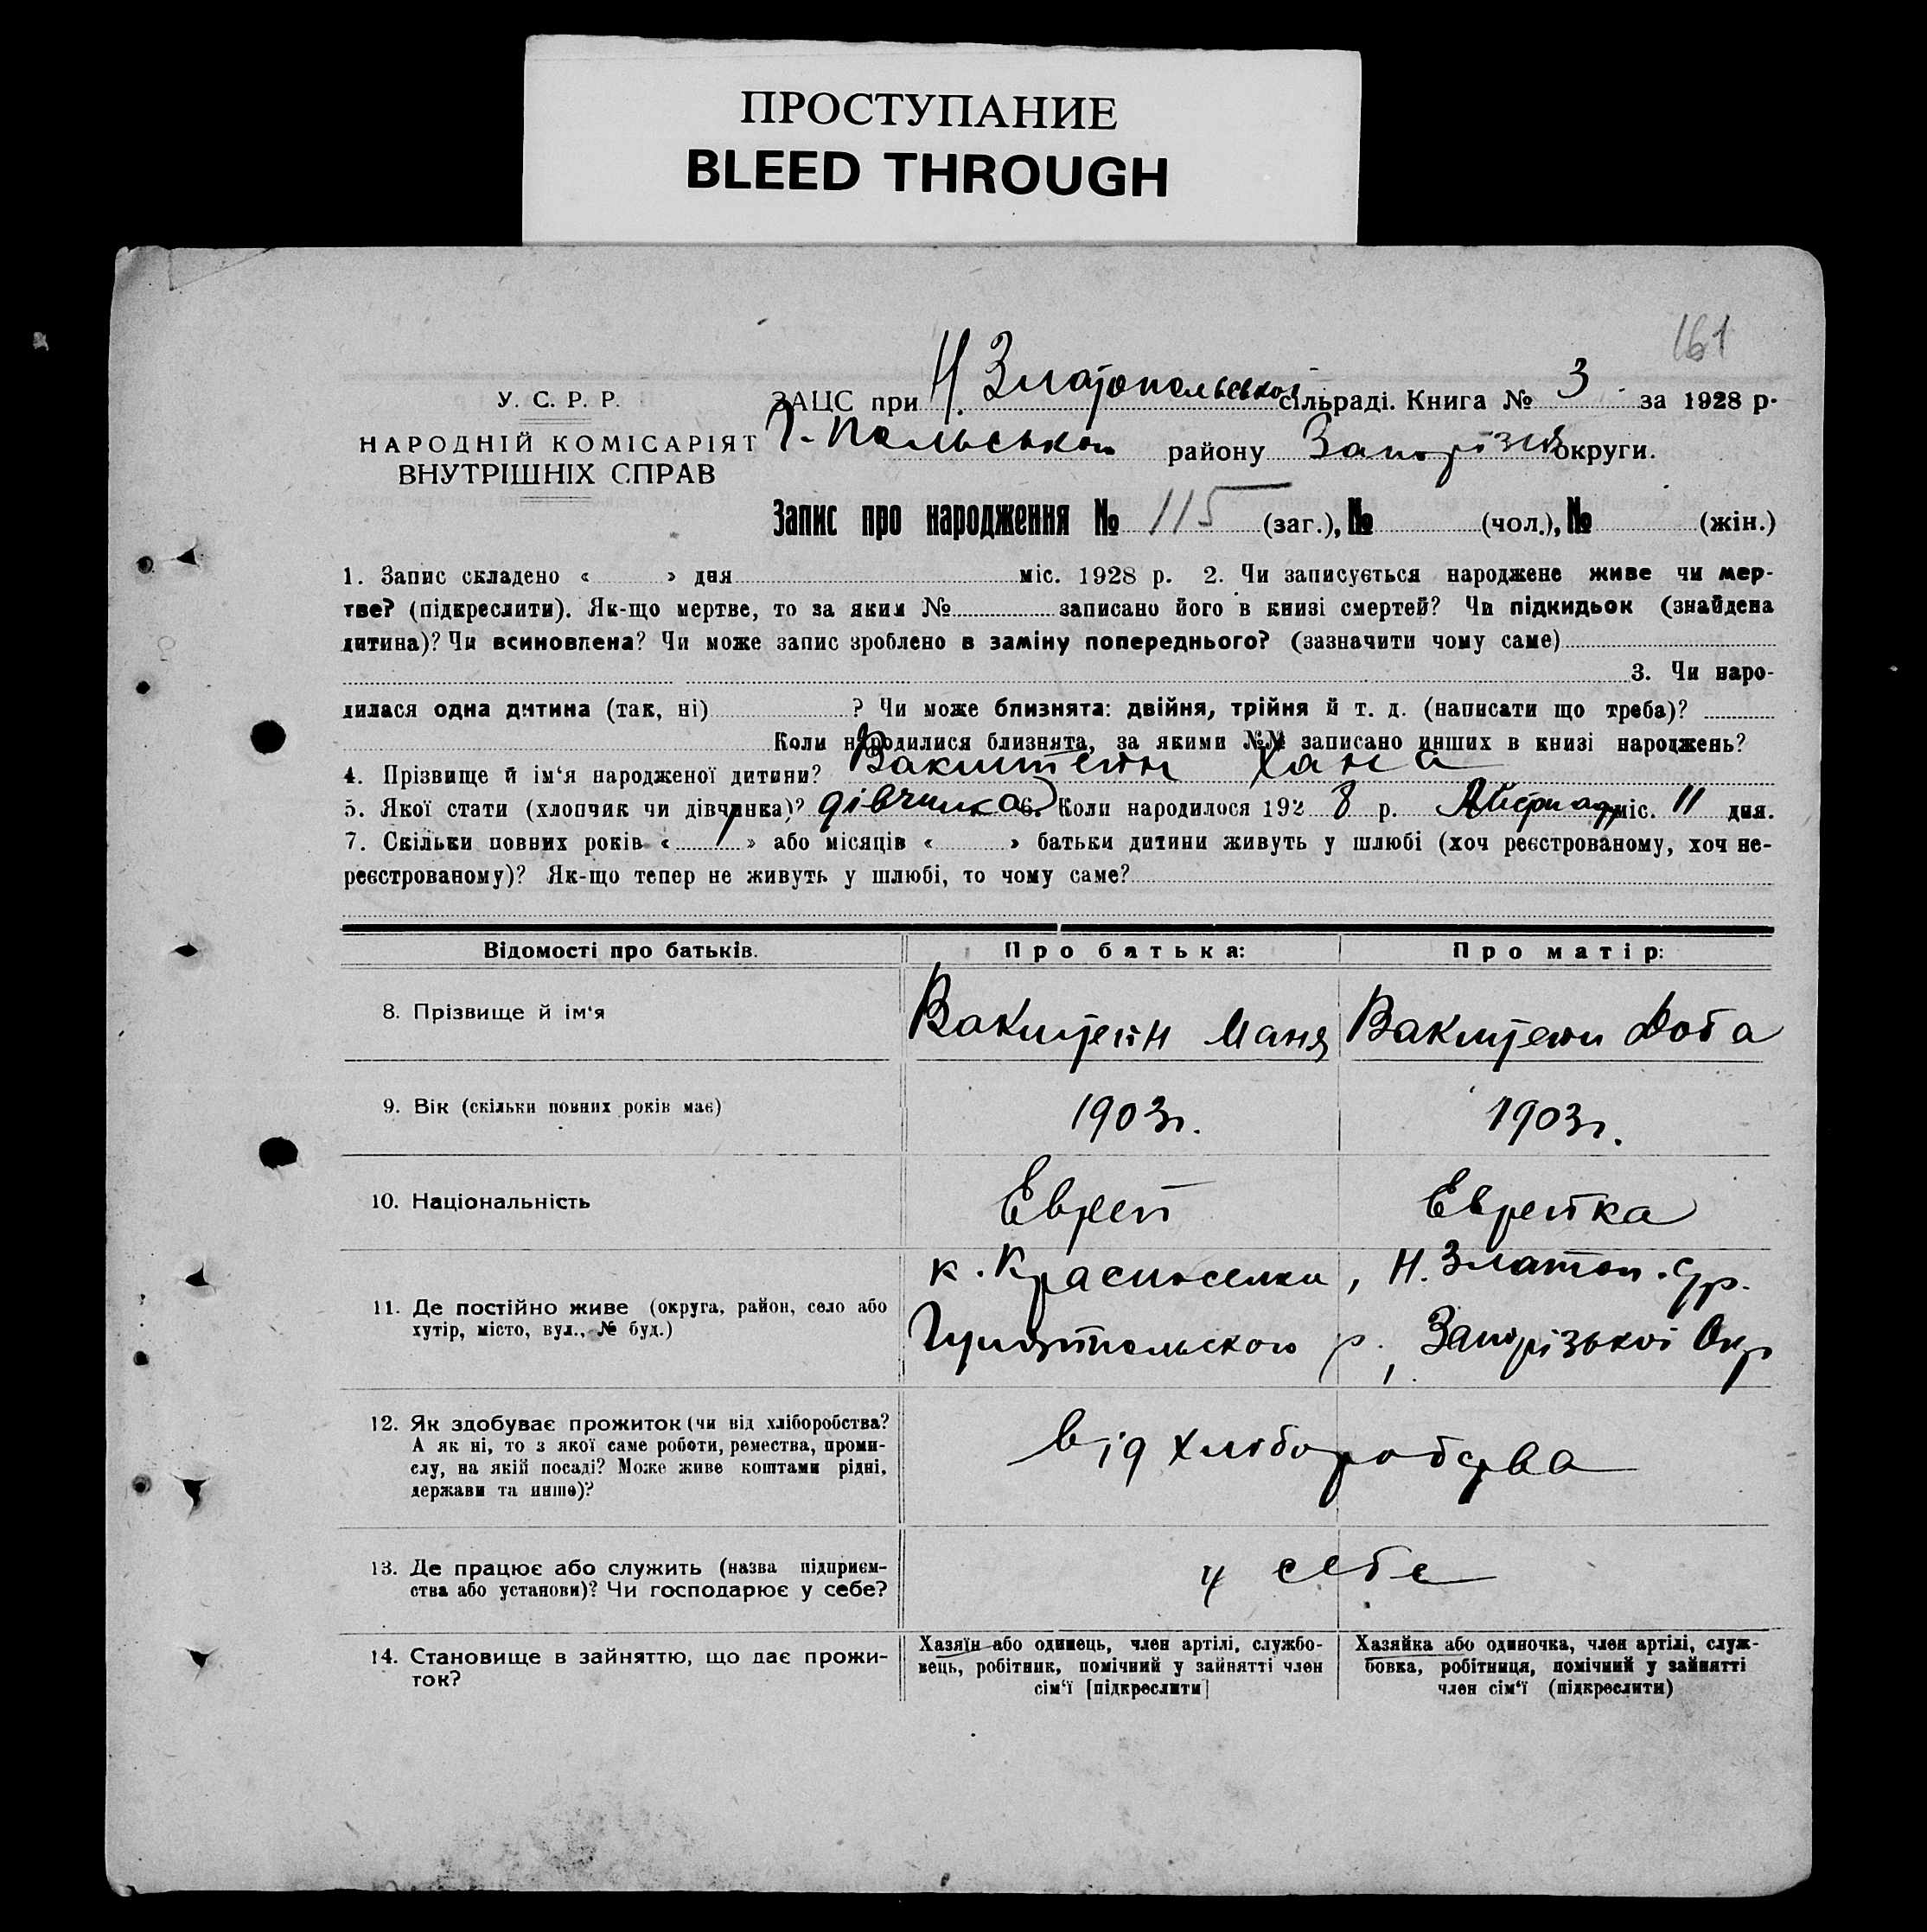 ПРОСТУПАНИЕ
BLEED THROUGH
161
У. С. Р. Р.
НАРОДНІЙ КОМІСАРІЯТ
ВНУТРІШНІХ СПРАВ
ЗАЦС при Н. Златопольській сільраді. Книга № 3 за 1928 р.
району округи.
Запис про народження № 115 (заг.), № (чол.), № (жін.)
1. Запис складено « » дня міс. 1928 р. 2. Чи записується народжене живе чи мер-
тве? (підкреслити). Як-що мертве, то за яким № записано його в книзі смертей? Чи підкидьок (знайдена
дитина)? Чи всиновлена? Чи може запис зроблено в заміну попереднього? (зазначити чому саме)
3. Чи наро-
дилася одна дитина (так, ні) ? Чи може близнята: двійня, трійня й т. д. (написати що треба)?
Коли народилися близнята, за якими №№ записано инших в книзі народжень?
4. Прізвище й ім‘я народженої дитини? Вакштейн Хана
5. Якої стати (хлопчик чи дівчинка)? дівчинка 6. Коли народилося 1928 р. міс. 11 дня.
7. Скільки повних років « » або місяців « » батьки дитини живуть у шлюбі (хоч реєстрованому, хоч не-
реєстрованому)? Як-що тепер не живуть у шлюбі, то чому саме?
Відомості про батьків. Про батька: Про матір:
8. Прізвище й ім‘я Вакштейн Вакштейн
9. Вік (скільки повних років має) 1903г. 1903г.
10. Національність Еврей Еврейка
11. Де постійно живе (округа, район, село або
хутір, місто, вул., № буд.)
к. Красноселка, Н. Златоп. с/р.
р., Запорізької Окр
12. Як здобуває прожиток (чи від хліборобства?
А як ні, то з якої саме роботи, ремества, проми-
слу, на якій посаді? Може живе коштами рідні,
держави та инше)?
від хліборобства
13. Де працює або служить (назва підприєм-
ства або установи)? Чи господарює у себе?
у себе
14. Становище в зайняттю, що дає прожи-
ток?
Хазяїн або одинець, член артілі, службо-
вець, робітник, помічний у зайнятті член
сім‘ї [підкреслити]
Хазяйка або одиночка, член артілі, служ-
бовка, робітниця, помічний у зайнятті
член сім‘ї (підкреслити)